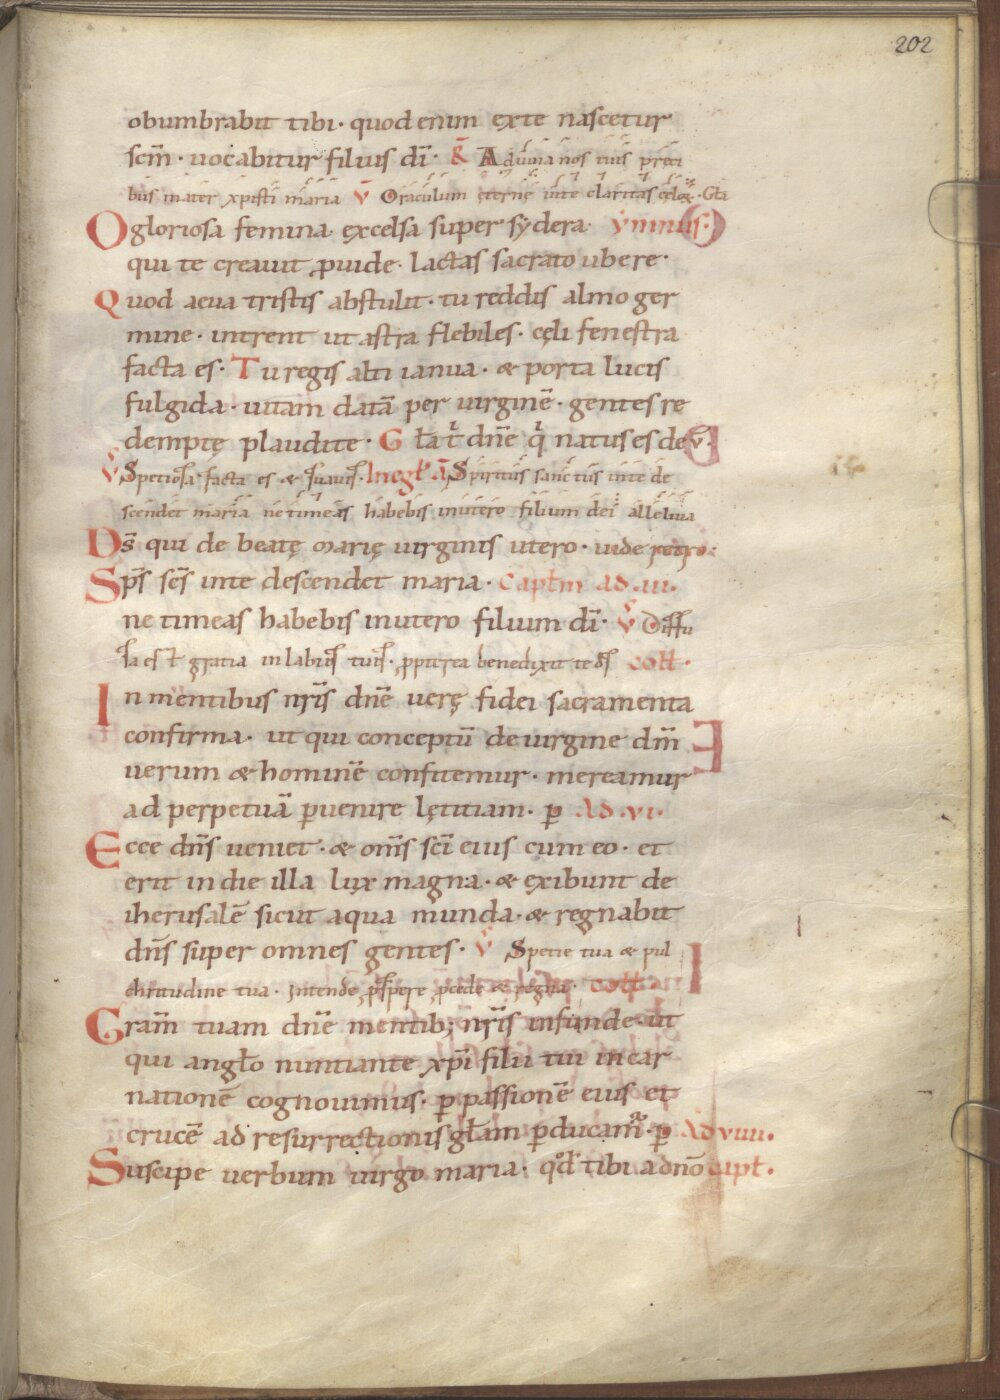 202
obumbrabit tibi· quod enim exte nascetur
scm̄· uocabitur filius dī· R̄ Adiuua nos tuis preci
bus mater xpisti maria V̄ Oraculum ęternę uitę claritas cęlox̨·Gła
O gloriosa femina· excelsa super sydera· Ymnus·
qui te creauit ꝓuide· lactas sacrato ubere·
Quod aeua tristis abstulit· tu reddis almo ger
mine· intrent ut astra flebiles· cęli fenestra
facta es· Tu regis alti ianua· & porta lucis
fulgida· uitam datā per uirginē· gentes re
demptę plaudite· Gła t̄ dnē q̄ natus es de v̄·
V̄ Speciosa facta es & suauis· In egł ā Spiritus sanctus inte de
scendet maria ne timeas habebis inutero filium dei alleluia
Ds̄ qui de beatę marię uirginis utero· uide retro·
Sps̄ scs̄ inte descendet maria· Captm ad .iii.
ne timeas habebis inutero filium dī· V̄ Diffu
sa est gratia in labiis tuis· ꝓpterea benedixit te ds̄ coll·
In mentibus nrīs dnē uerę fidei sacramenta
confirma· ut qui conceptū de uirgine dm̄
uerum & hominē confitemur· mereamur
ad perpetuā ꝑuenire lętitiam· ꝑ Ad .vi·
Ecce dns̄ ueniet· & oms̄ scī eius cum eo· et
erit in die illa lux magna· & exibunt de
iherusalē sicut aqua munda· & regnabit
dns̄ super omnes gentes· V̄ Specie tua & pul
chritudine tua· Intende ꝓspere ꝓcede & regna· coll
Gram̄ tuam dnē mentib; nrīs infunde· ut
qui angło nuntiante xpī filii tui incar
nationē cognouimus· ꝑ passionē eius et
crucē ad resurrectionis głam ꝑducam̄· ꝑ Ad viiii.
Suscipe uerbum uirgo maria· qd̄ tibi a dnō capł.